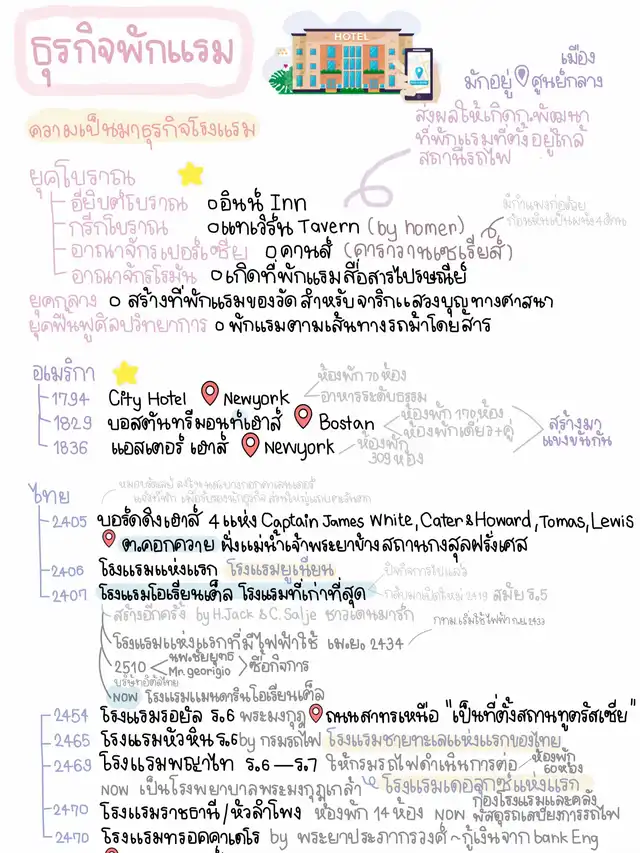 ธุรกิจพักแรม
HOTEL
มักอยู่ เมือง ศูนย์กลาง
ความเป็นมาธุรกิจโรงแรม
ส่งผลให้เกิดกพัฒนา
ที่พักแรมที่ตั้งอยู่ใกล้
สถานีรถไฟ
ยุคโบราณ
อียิปต์โบราณ อินน์ Inn
กรีกโบราณ แทเวิร์น Tavern (by homer)
อาณาจักรเปอร์เซีย คานส์ (คาราวานเซเรียส์)
อาณาจักรโรมัน เกิดที่พักแรมสื่อสารไปรษณีย์
ยุคกลาง สร้างที่พักแรมของวัด สำหรับจาริกแสวงบุญทางศาสนา
ยุคฟื้นฟูศิลปวิทยาการ พักแรมตามเส้นทางรถม้าโดยสาร
อเมริกา
1794 City Hotel Newyork ห้องพัก 70 ห้อง
อาหารระดับธรรม
1829 บอสตันทรีมอนท์เฮาส์ Bostan ห้องพัก 170 ห้อง
ห้องพักเดี่ยว+คู่
สร้างมา
แข่งขันกัน
1836 แอสเตอร์ เฮาส์ Newyork ห้องพัก
309 ห้อง
ไทย
2405 บอร์ดดิงเฮาส์ 4 แห่ง Captain James White, Cater & Howard, Tomas, Lewis
ต.คอกควาย ฝั่งแม่น้ำเจ้าพระยาข้างสถานกงสุลฝรั่งเศส
2406 โรงแรมแห่งแรก โรงแรมยูเนียน
2407 โรงแรมโอเรียนเต็ล โรงแรมที่เก่าที่สุด
ปิดกิจการไปแล้ว
กลับมาเปิดใหม่ 2419 สมัย ร.5
สร้างอีกครั้ง by H.Jack & C. Salje ชาวเดนมาร์ก
โรงแรมแห่งแรกที่มีไฟฟ้าใช้ เม.ย. 2434
2510 นพ.ชัยยุทธ
Mr. georigio ซื้อกิจการ
บริษัทอิตัลไทย
NOW โรงแรมแมนดารินโอเรียนเต็ล
2454 โรงแรมรอยัล ร.6 พระมงกุฎ ถนนสาทรเหนือ "เป็นที่ตั้งสถานทูตรัสเซีย"
2465 โรงแรมหัวหิน ร.6 by กรมรถไฟ โรงแรมชายทะเลแห่งแรกของไทย
2469 โรงแรมพญาไท ร.6 — ร.7 ให้กรมรถไฟดำเนินการต่อ ห้องพัก
60 ห้อง
NOW เป็นโรงพยาบาลพระมงกุฎเกล้า โรงแรมเดอลุกซ์แห่งแรก
2470 โรงแรมราชธานี/หัวลำโพง ห้องพัก 14 ห้อง NOW กองโรงแรมและคลัง
พัสดุรถเสบียงการรถไฟ
2470 โรงแรมทรอคคาเดโร by พระยาประภากรวงศ์ ~ กู้เงินจาก bank Eng